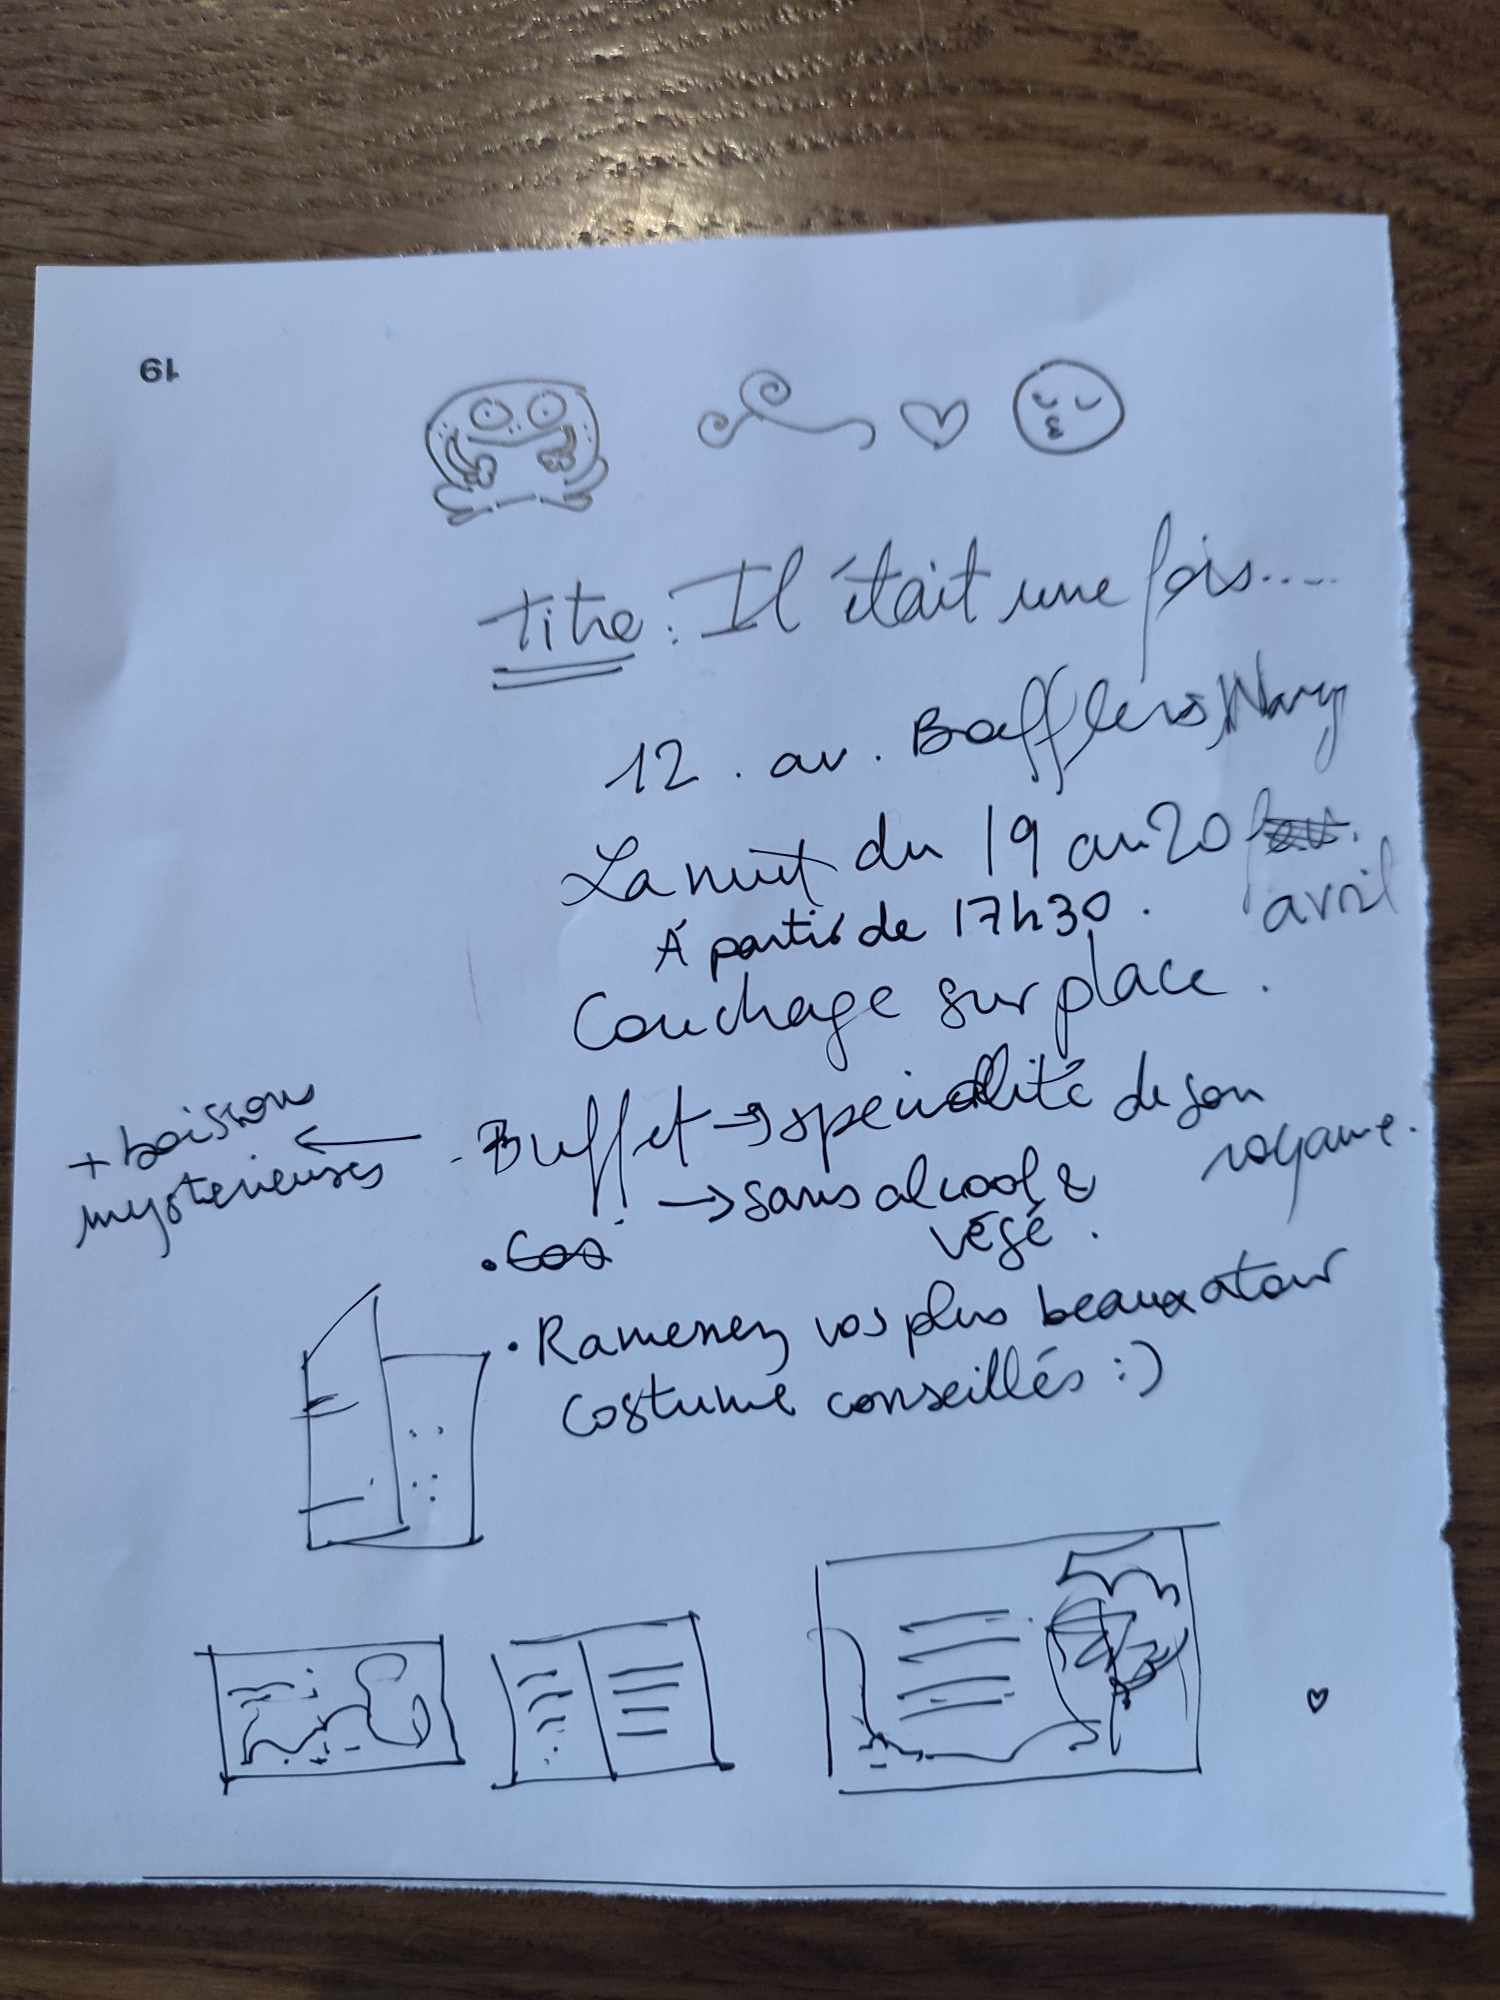 19
Titre : Il était une fois.....
12. av. Bafflers,
La nuit du 19 au 20
avril
À partir de 17h30.
Couchage sur place.
. Buffet → spécialité de son
royaume.
+ boissons
mystérieuses
→ sans alcool &
végé.
. Cos
. Ramenez vos plus beaux atour
costume conseillés :)